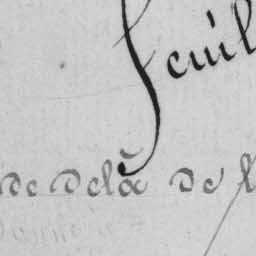 feuil
de delà de l